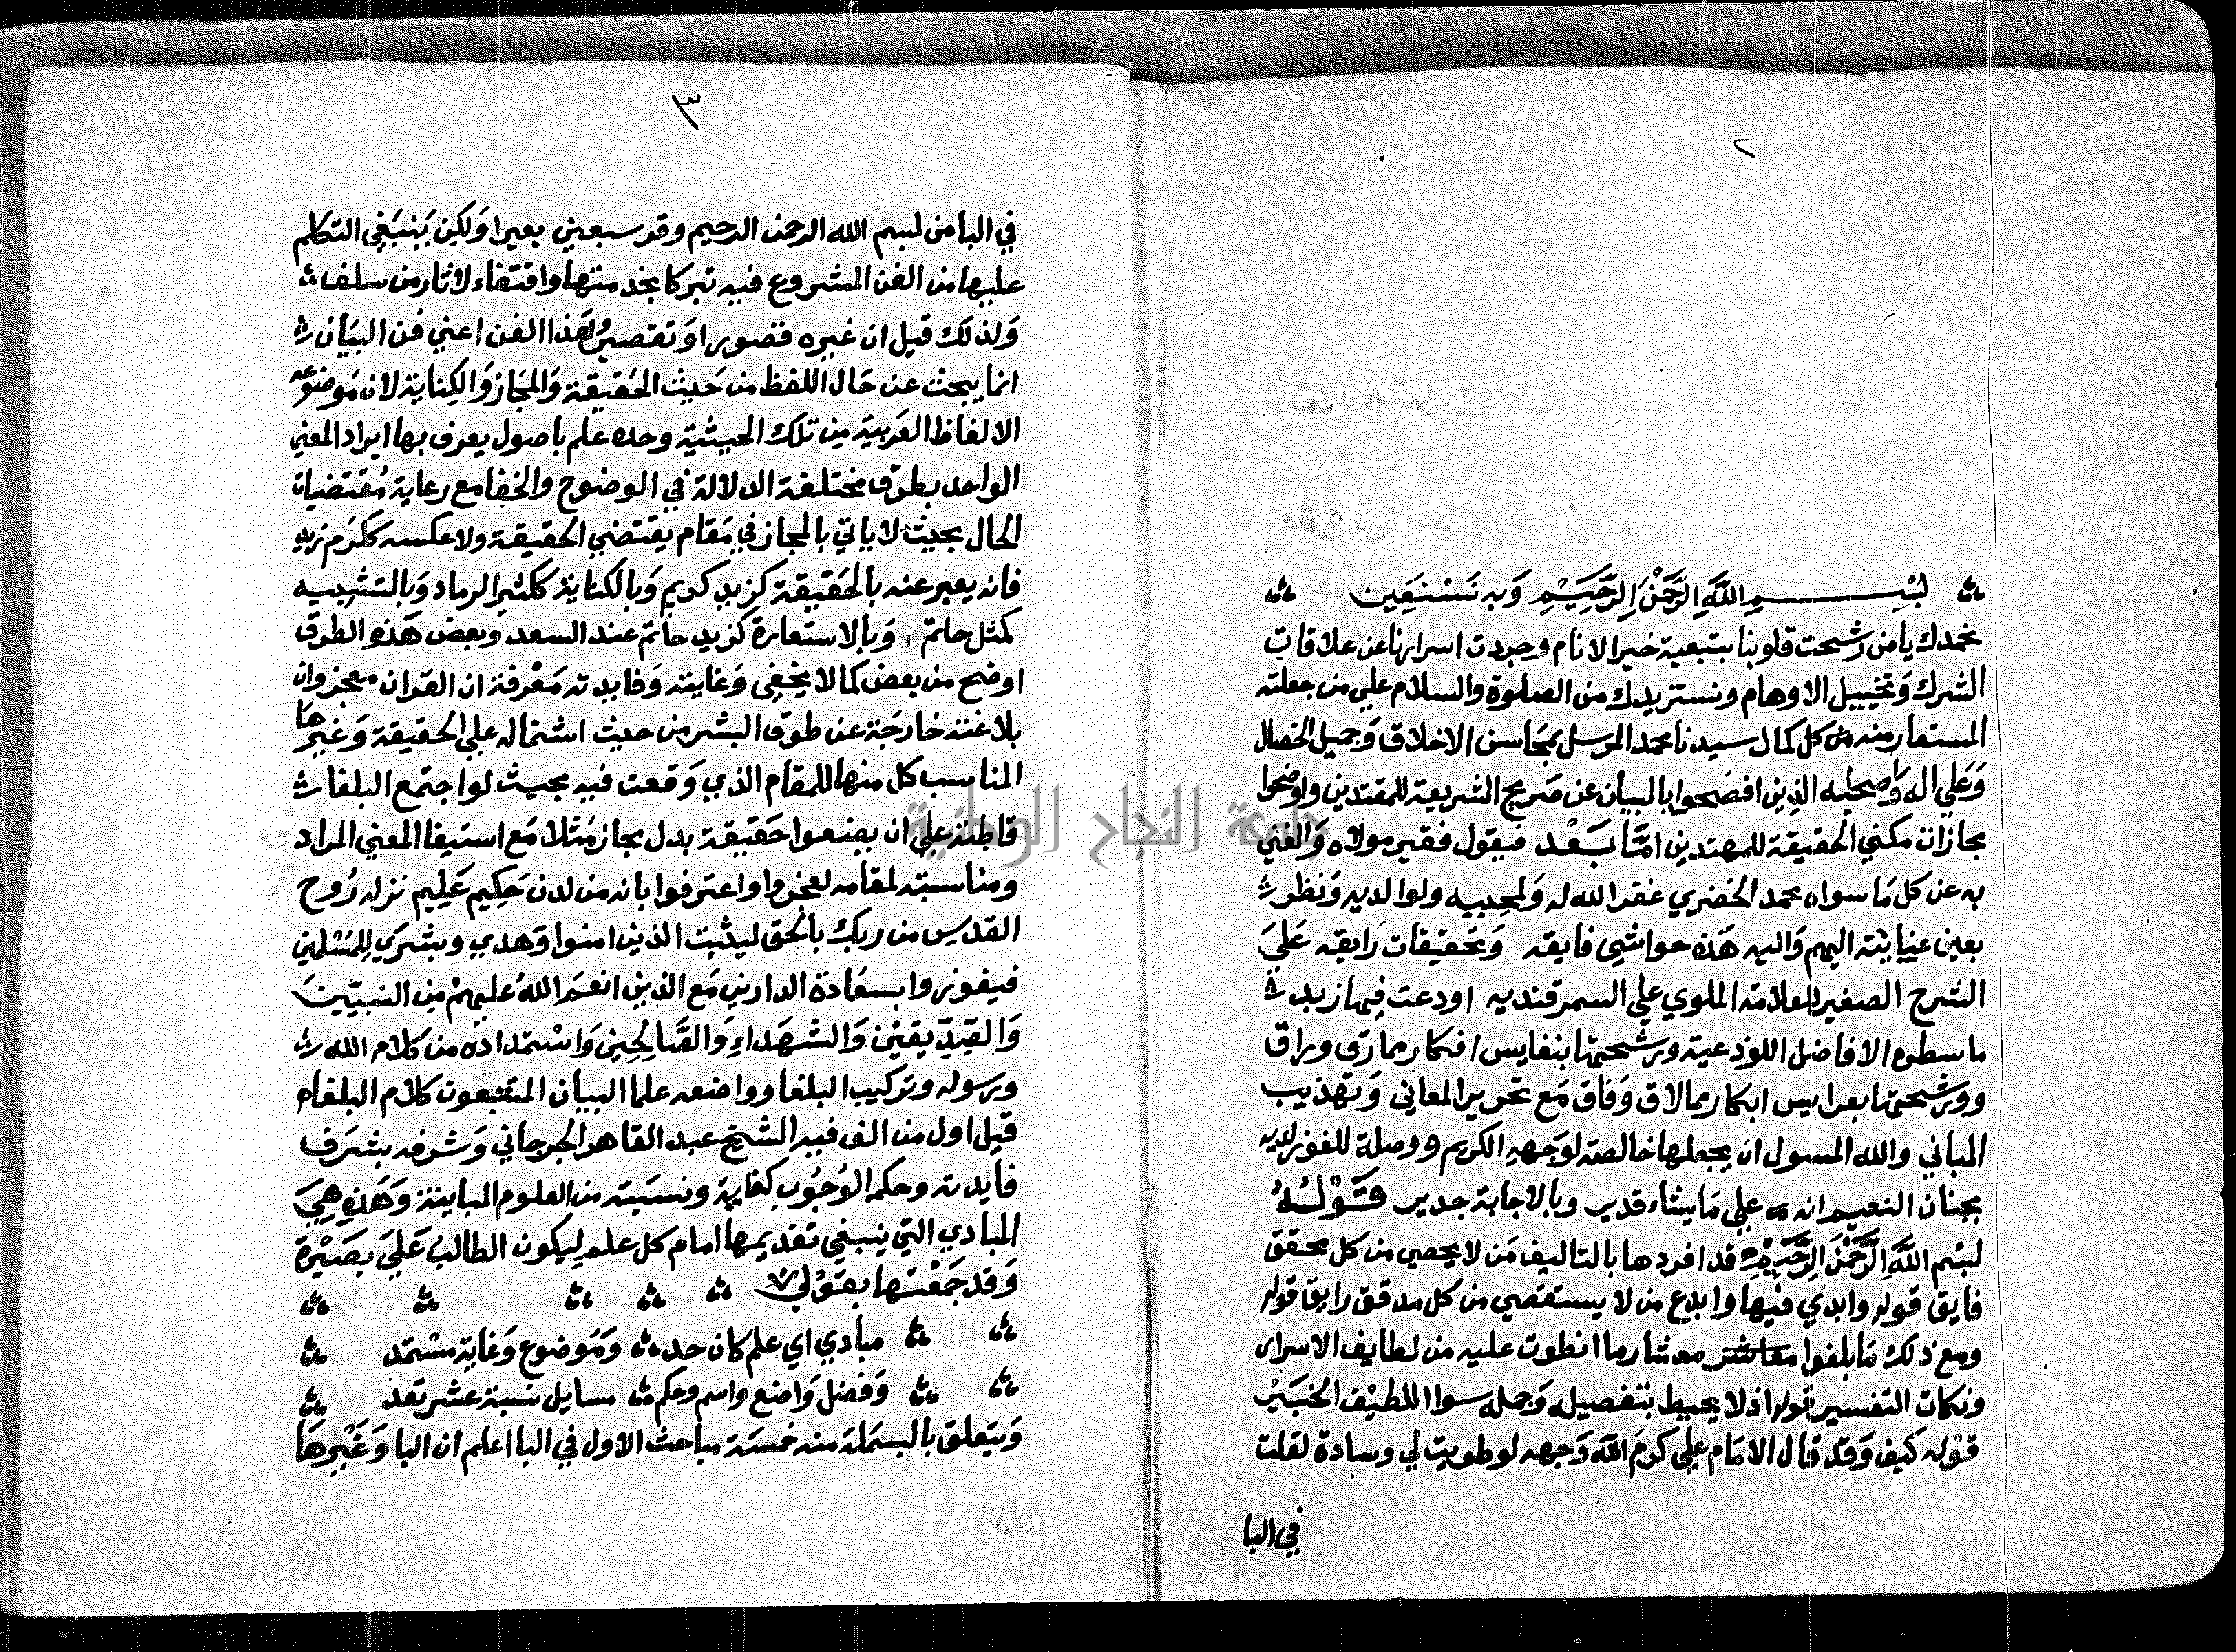 ٢
بسم الله الرحمن الرحيم وبه نستعين
نحمدك يا من رشحت قلوبنا بتبعية خير الانام وجردت اسرارنا عن علاقات
الشرك وتخييل الاوهام ونستزيدك من الصلوة والسلام علي من جعلته
المستعار منه كل كمال سيدنا محمد المرسل بمحاسن الاخلاق وجميل الخصال
وعلي اله واصحابه الذين افصحوا بالبيان عن صريح الشريعة للمقتدين واوضحوا
مجازات مكني الحقيقة للمهتدين اما بعد فيقول فقير مولاه والغني
به عن كل ما سواه محمد الخضري غفر الله له ولمحبيه ولوالديه ونظر
بعين عنايته اليهم واليه هذه حواشي فايقه وتحقيقات رايقه علي
الشرح الصغير للعلامة الملوي علي السمرقنديه اودعت فيها زبد
ما سطره الافاضل اللوذعية ورشحتها بنفايس افكار مما رق وراق
ووشحتها بعرايس ابكار مما لاق وفاق مع تحرير المعاني وتهذيب
المباني والله المسول ان يجعلها خالصة لوجهه الكريم ووصلة للفوز لديه
بجنان النعيم انه علي ما يشاء قدير وبالاجابة جدير قوله
بسم الله الرحمن الرحيم قد افردها بالتاليف من لا يحصي من كل محقق
فايق قوله وابدي فيها وابدع من لا يستقصي من كل مدقق رايق قوله
ومع ذلك ما بلغوا معشار ما انطوت عليه من لطايف الاسرار
ونكات التفسير قوله اذ لا يحيط بتفصيله وجمله سوا اللطيف الخبير
قوله كيف وقد قال الامام علي كرم الله وجهه لو طويت لي وسادة لقلت
في البا
٣
في البا من بسم الله الرحمن الرحيم وقر سبعين بعيرا ولكن ينبغي التكلم
عليها من الفن المشروع فيه تبركا بخدمتها واقتفاء لاثار من سلف
ولذلك قيل ان غيره قصور او تقصير لهذا الفن اعني فن البيان
انما يبحث عن حال اللفظ من حيث الحقيقة والمجاز والكناية لان موضوعه
الالفاظ العربية من تلك الحيثية وحده علم باصول يعرف بها ايراد المعني
الواحد بطرق مختلفة الدلالة في الوضوح والخفا مع رعاية مقتضيات
الحال بحيث لا ياتي بالمجاز في مقام يقتضي الحقيقة ولا عكسه ككرم زيد
فانه يعبر عنه بالحقيقة كزيد كريم وبالكناية ككثير الرماد وبالتشبيه
كمثل حاتم وبالاستعارة كزيد حاتم عند السعد وبعض هذه الطرق
اوضح من بعض كما لا يخفي وغايته وفايدته معرفة ان القران معجز وان
بلاغته خارجة عن طوق البشر من حيث اشتماله علي الحقيقة وغيرها
المناسب كل منها للمقام الذي وقعت فيه بحيث لو اجتمع البلغا
قاطبة علي ان يضعوا حقيقة بدل مجاز مثلا مع استيفا المعني المراد
ومناسبته لمقامه لعجزوا واعترفوا بانه من لدن حكيم عليم نزله روح
القدس من ربك بالحق ليثبت الذين امنوا وهدي وبشري للمسلمين
فيفوزوا بسعادة الدارين مع الذين انعم الله عليهم من النبيين
والصديقين والشهداء والصالحين واستمداده من كلام الله
ورسوله وتركيب البلغا وواضعه علما البيان المتتبعون كلام البلغاء
قيل اول من الف فيه الشيخ عبد القاهر الجرجاني وشرفه بشرف
فايدته وحكمه الوجوب كفاية ونسبته من العلوم المباينة وهذه هي
المبادي التي ينبغي تقديمها امام كل علم ليكون الطالب علي بصيرة
وقد جمعتها بقولي
مبادي اي علم كان حد وموضوع وغاية مستمد
وفضل واضع واسم وحكم مسايل نسبة عشر تعد
ويتعلق بالبسملة منه خمسة مباحث الاول في البا اعلم ان البا وغيرها
جامعة النجاح الوطنية